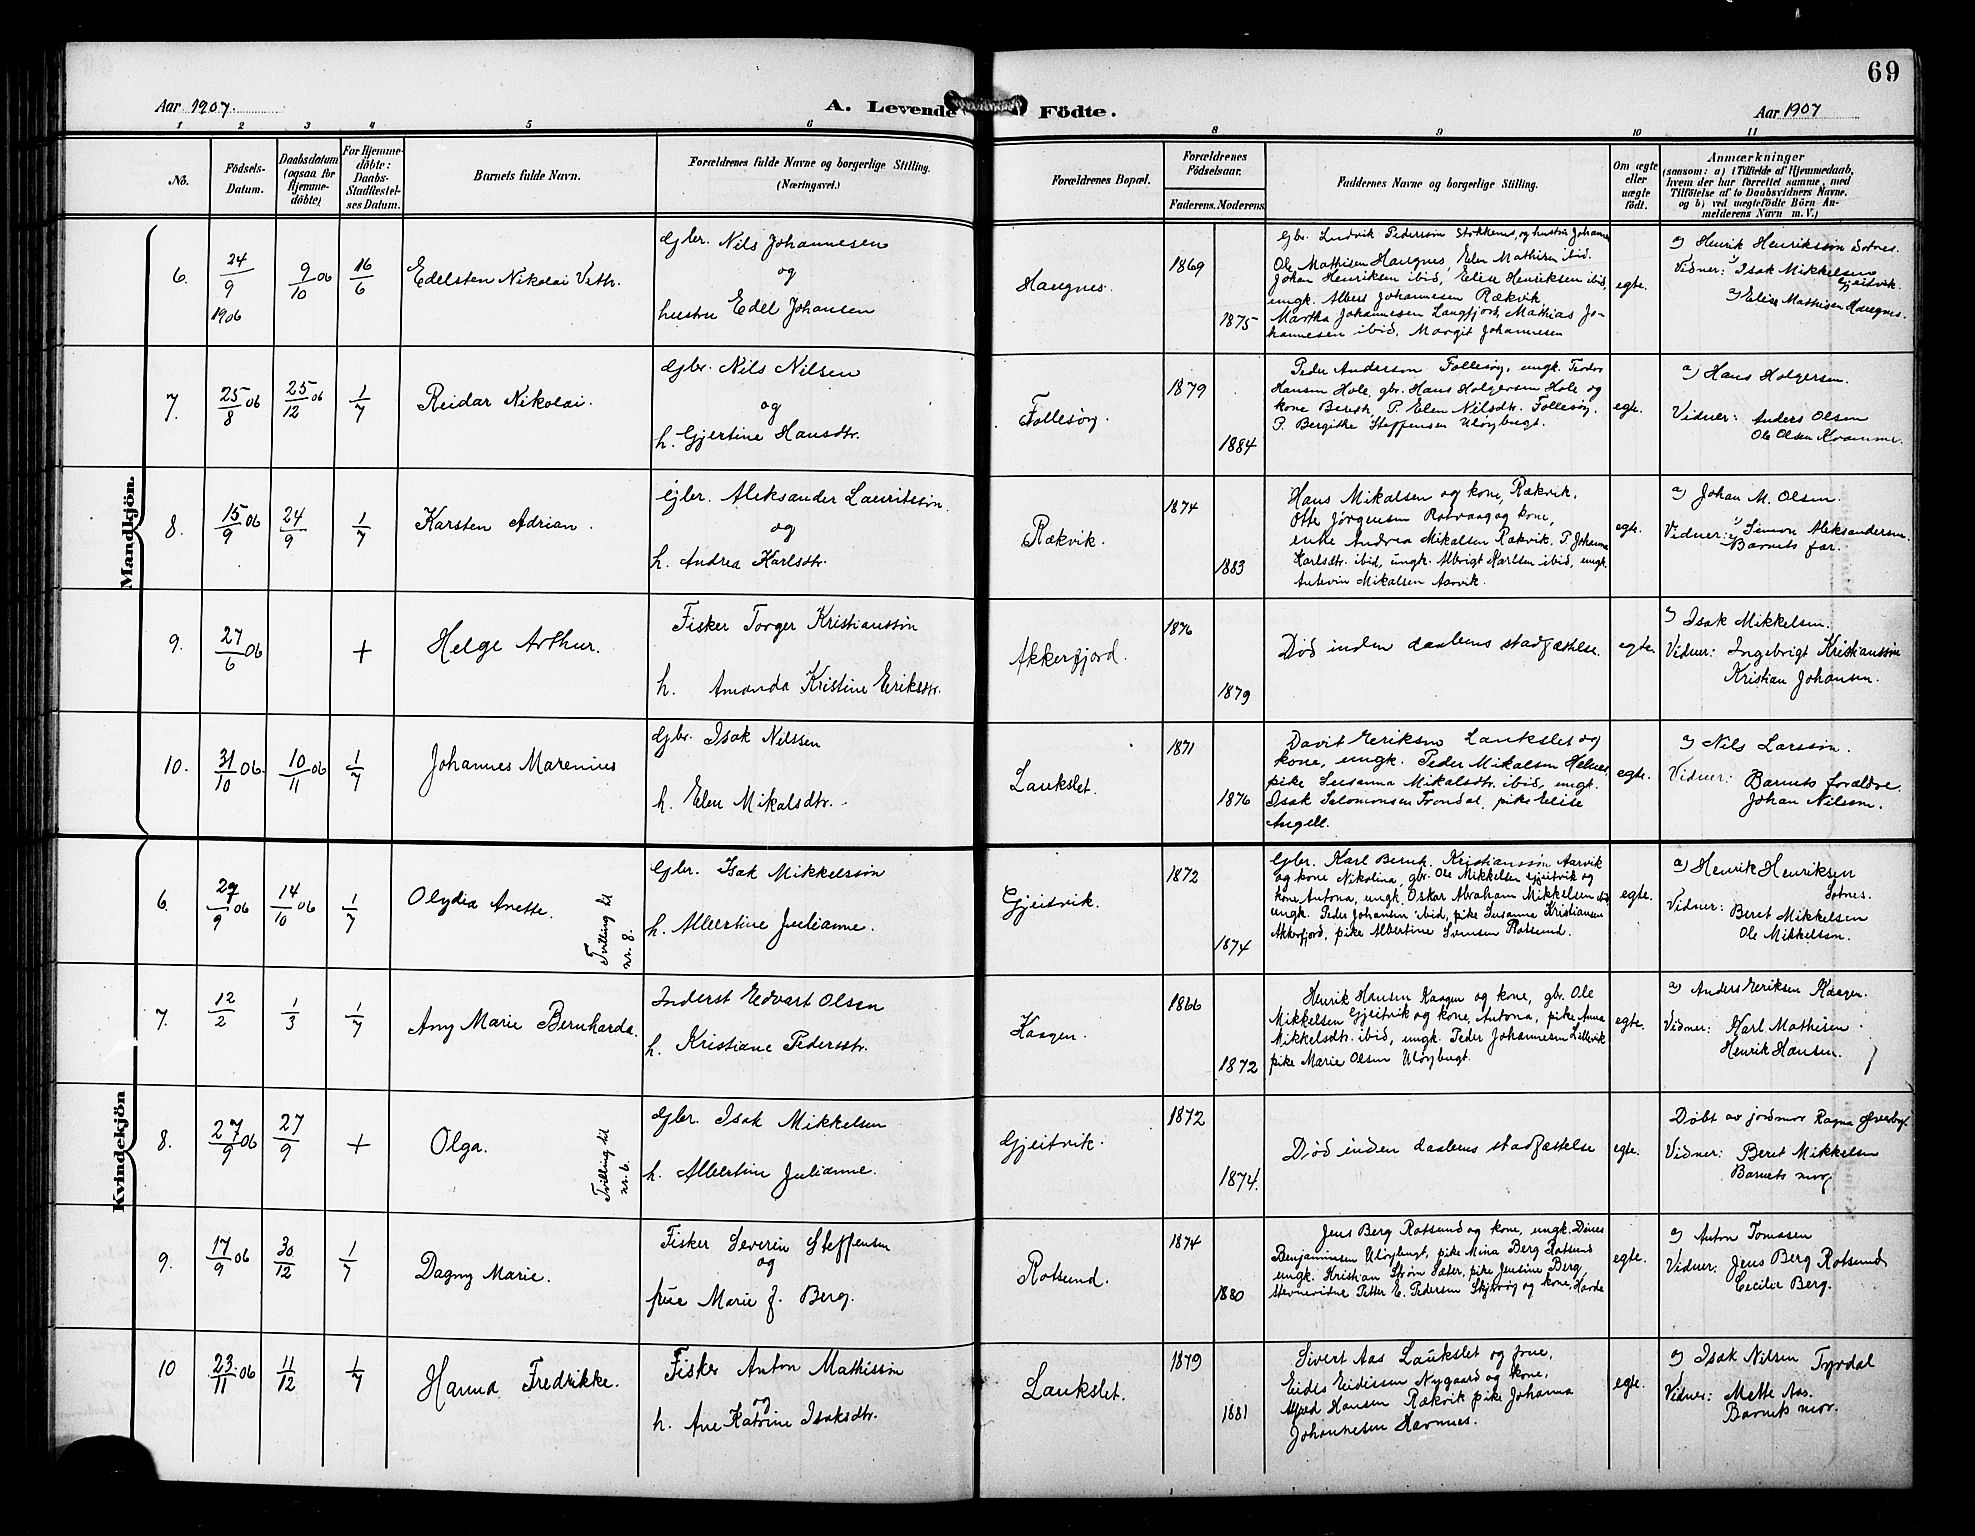 69
Aar 1907.
A. Levende Födte.
Aar 1907
1 2 3 4 5 6 8 9 10 11
No.
Födsels-
Datum.
Daabsdatum
(ogsaa for
Hjemme-
döbte)
For Hjemme-
döbte:
Daabs-
Stadfæstel-
ses Datum.
Barnets fulde Navn.
Forældrenes fulde Navne og borgerlige Stilling.
(Næringsvei.)
Forældrenes Bopæl.
Forældrenes
Födselsaar.
Faderens. Moderens.
Faddernes Navne og borgerlige Stilling.
Om ægte
eller
uægte
födt.
Anmærkninger
(saasom: a) i Tilfælde af Hjemmedaab,
hvem der har forrettet samme, med
Tilföielse af to Daabsvidners Navne.
og b) ved uægtefödte Börn An-
melderens Navn m. V.)
Mandkjön.
6.
24/9
1906
9/10 06
16/6
Edelsten Nikolai Vethr.
Gbr. Nils Johannesen
og
hustru Edel Johansen
Haugnes.
1869
1875
Gbr. Ludvik Pederssøn Stokkenes, og hustru Johanna
Ole Mathisen Haugnes, Elen Mathisen ibid.
Johan Henriksen ibid, Elise Henriksen ibid,
ungk. Albert Johannesen Rækvik,
Martha Johannesen Langfjord, Mathias Jo-
hannesen ibid, Margit Johannesen
egte.
a) Henrik Henrikssøn Sotnes.
Vidner: 1) Isak Mikkelsen
Gjeitvik.
2) Elise Mathisen Haugnes.
7.
25/8 06
25/12 06
1/7
Reidar Nikolai.
Gbr. Nils Nilsen
og
h. Gjertine Hansdtr.
Follesøy.
1879
1884
Peder Anderssen Follesøy, ungk. Teodor
Hansen Hole, gbr. Hans Holgersen Hole og
kone Bereth, P. Elen Nilsdtr. Follesøy,
P. Bergithe Steffensen Uløybugt.
egte.
a) Hans Holgersen.
Vidner: Anders Olsen
Ole Olsen Kvamme.
8.
15/9 06
24/9
1/7
Karsten Adrian.
Gbr. Aleksander Lauritssøn
og
h. Andrea Karlsdtr.
Rækvik.
1874
1883
Hans Mikalsen og kone, Rækvik,
Otto Jørgensen Rotvaag og kone,
enke Andrea Mikalsen Rækvik. P. Johanna
Karlsdtr. ibid, ungk. Albrigt Karlsen ibid, ungk.
Antevin Mikalsen Aarvik.
egte.
a) Johan M. Olsen.
Vidner: 1) Simon Aleksandersen.
2) Barnets far.
9.
27/6 06
+
Helge Arthur.
Fisker Torger Kristianssøn
h. Amanda Kristine Eriksdtr.
Akkerfjord.
1876
1879
Død inden daabens stadfæstelse.
egte.
a) Isak Mikkelsen.
Vidner: Ingebrigt Kristianssøn
Kristian Johansen.
10.
31/10 06.
10/11 06
1/7
Johannes Marenius
Gbr. Isak Nilssen
h. Elen Mikalsdtr.
Laukslet.
1871
1876
Davit Eriksen Laukslet og
kone, ungk. Peder Mikalsen Havnes
pike Susanna Mikalsdtr. ibid, ungk.
Isak Salomonsen Trondal, pike Elise
Angell.
egte.
a) Nils Larssøn.
Vidner: Barnets forældre.
Johan Nilsen.
Kvindekjön
6.
27/9 06
14/10 06
1/7
Olydia Anette.
Tvilling til
nr. 8.
Gbr. Isak Mikkelssøn
h. Albertine Julianne.
Gjeitvik.
1872
1874
Gbr. Karl Bernh. Kristianssøn Aarvik
og kone Nikolina, gbr. Ole Mikkelsen Gjeitvik og
kone Antona, ungk. Oskar Abraham Mikkelsen ibid
ungk. Peder Johansen ibid, pike Susanna Kristiansen
Akkerfjord, pike Albertine Svensen Rotsund.
egte.
a) Henrik Henriksen
Sotnes.
Vidner: Beret Mikkelsen
Ole Mikkelsen.
7.
12/2
1/3
1/7
Amy Marie Bernharda.
Inderst Edvart Olsen
h. Kristiane Pedersdtr.
Kaagen.
1866
1872
Henrik Hansen Kaagen og kone, gbr. Ole
Mikkelsen Gjeitvik og kone, Antona, pike Anna
Mikkelsdtr. ibid, ungk. Peder Johannesen Lillevik
pike Marie Olsen Uløybugt.
egte.
a) Anders Eriksen Kaagen.
Vidner: Karl Mathisen.
Henrik Hansen.
8.
27/9 06
27/9
+
Olga.
Tvilling til
nr. 6.
Gbr. Isak Mikkelsen
h. Albertine Julianne.
Gjeitvik.
1872
1874.
Død inden daabens stadfæstelse
egte.
Døbt av jordmor Ragna Øverbye.
Vidner: Beret Mikkelsen
Barnets mor
9.
17/9 06
30/12
1/7
Dagny Marie.
Fisker Severin Steffensen
og
frue Marie f. Berg.
Rotsund.
1874
1880
Jens Berg Rotsund og kone, ungk. Dines
Benjaminsen Uløybugt, pike Mina Berg Rotsund
ungk. Kristian Strøm Sæter, pike Jensine Berg,
stevnevidne Petter E. Pedersen Skjervøy og kone, Havde
egte.
a) Anton Tomasen
Vidner: Jens Berg Rotsund
Cecilie Berg.
10
23/11 06
11/12
1/7
Hanna Fredrikke.
Fisker Anton Mathissøn
og
h. Ane Katrine Isaksdtr.
Laukslet.
1879
1881
Sivert Aas Laukslet og frue,
Eidis Eidissen Nygaard og kone,
Alfred Hansen Rækvik pike Johanna
Johannesen Havnnes.
egte.
a) Isak Nilsen Tyrdal
Vidner: Mette Aas.
Barnets mor.